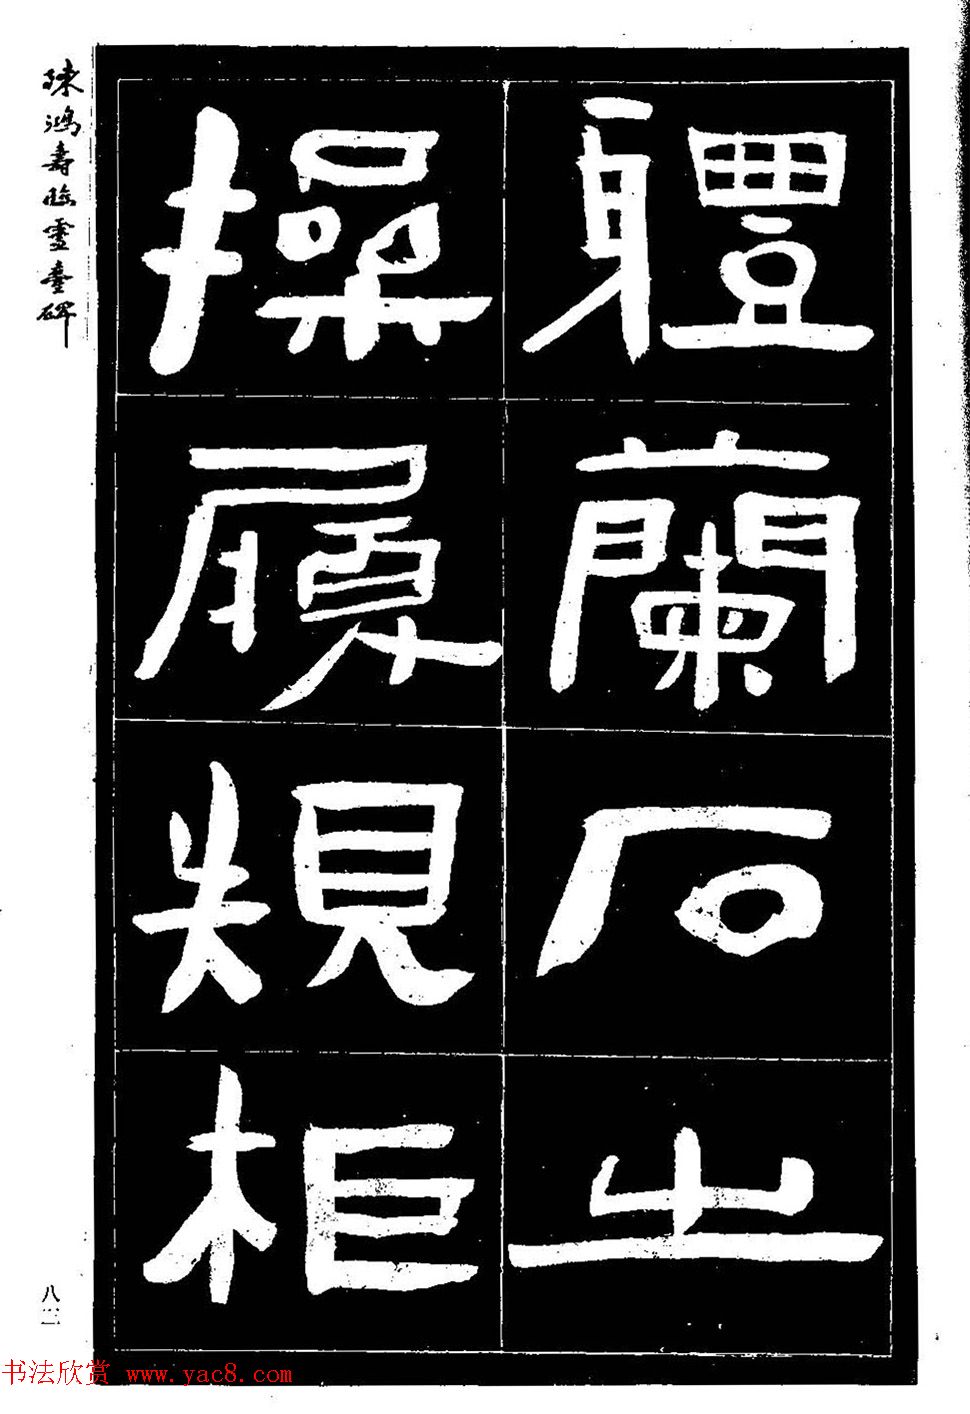 軆蘭石之
操履規柜
陳鴻壽臨靈臺碑
八三
书法欣赏 www.yac8.com